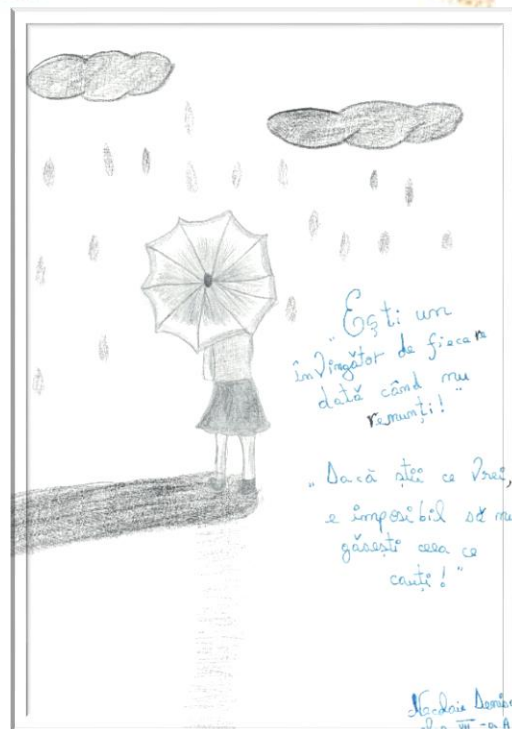 „Ești un
învingător de fiecare
dată când nu
renunți!”
„Dacă știi ce vrei,
e imposibil să nu
găsești ceea ce
cauți!”
VII-a A